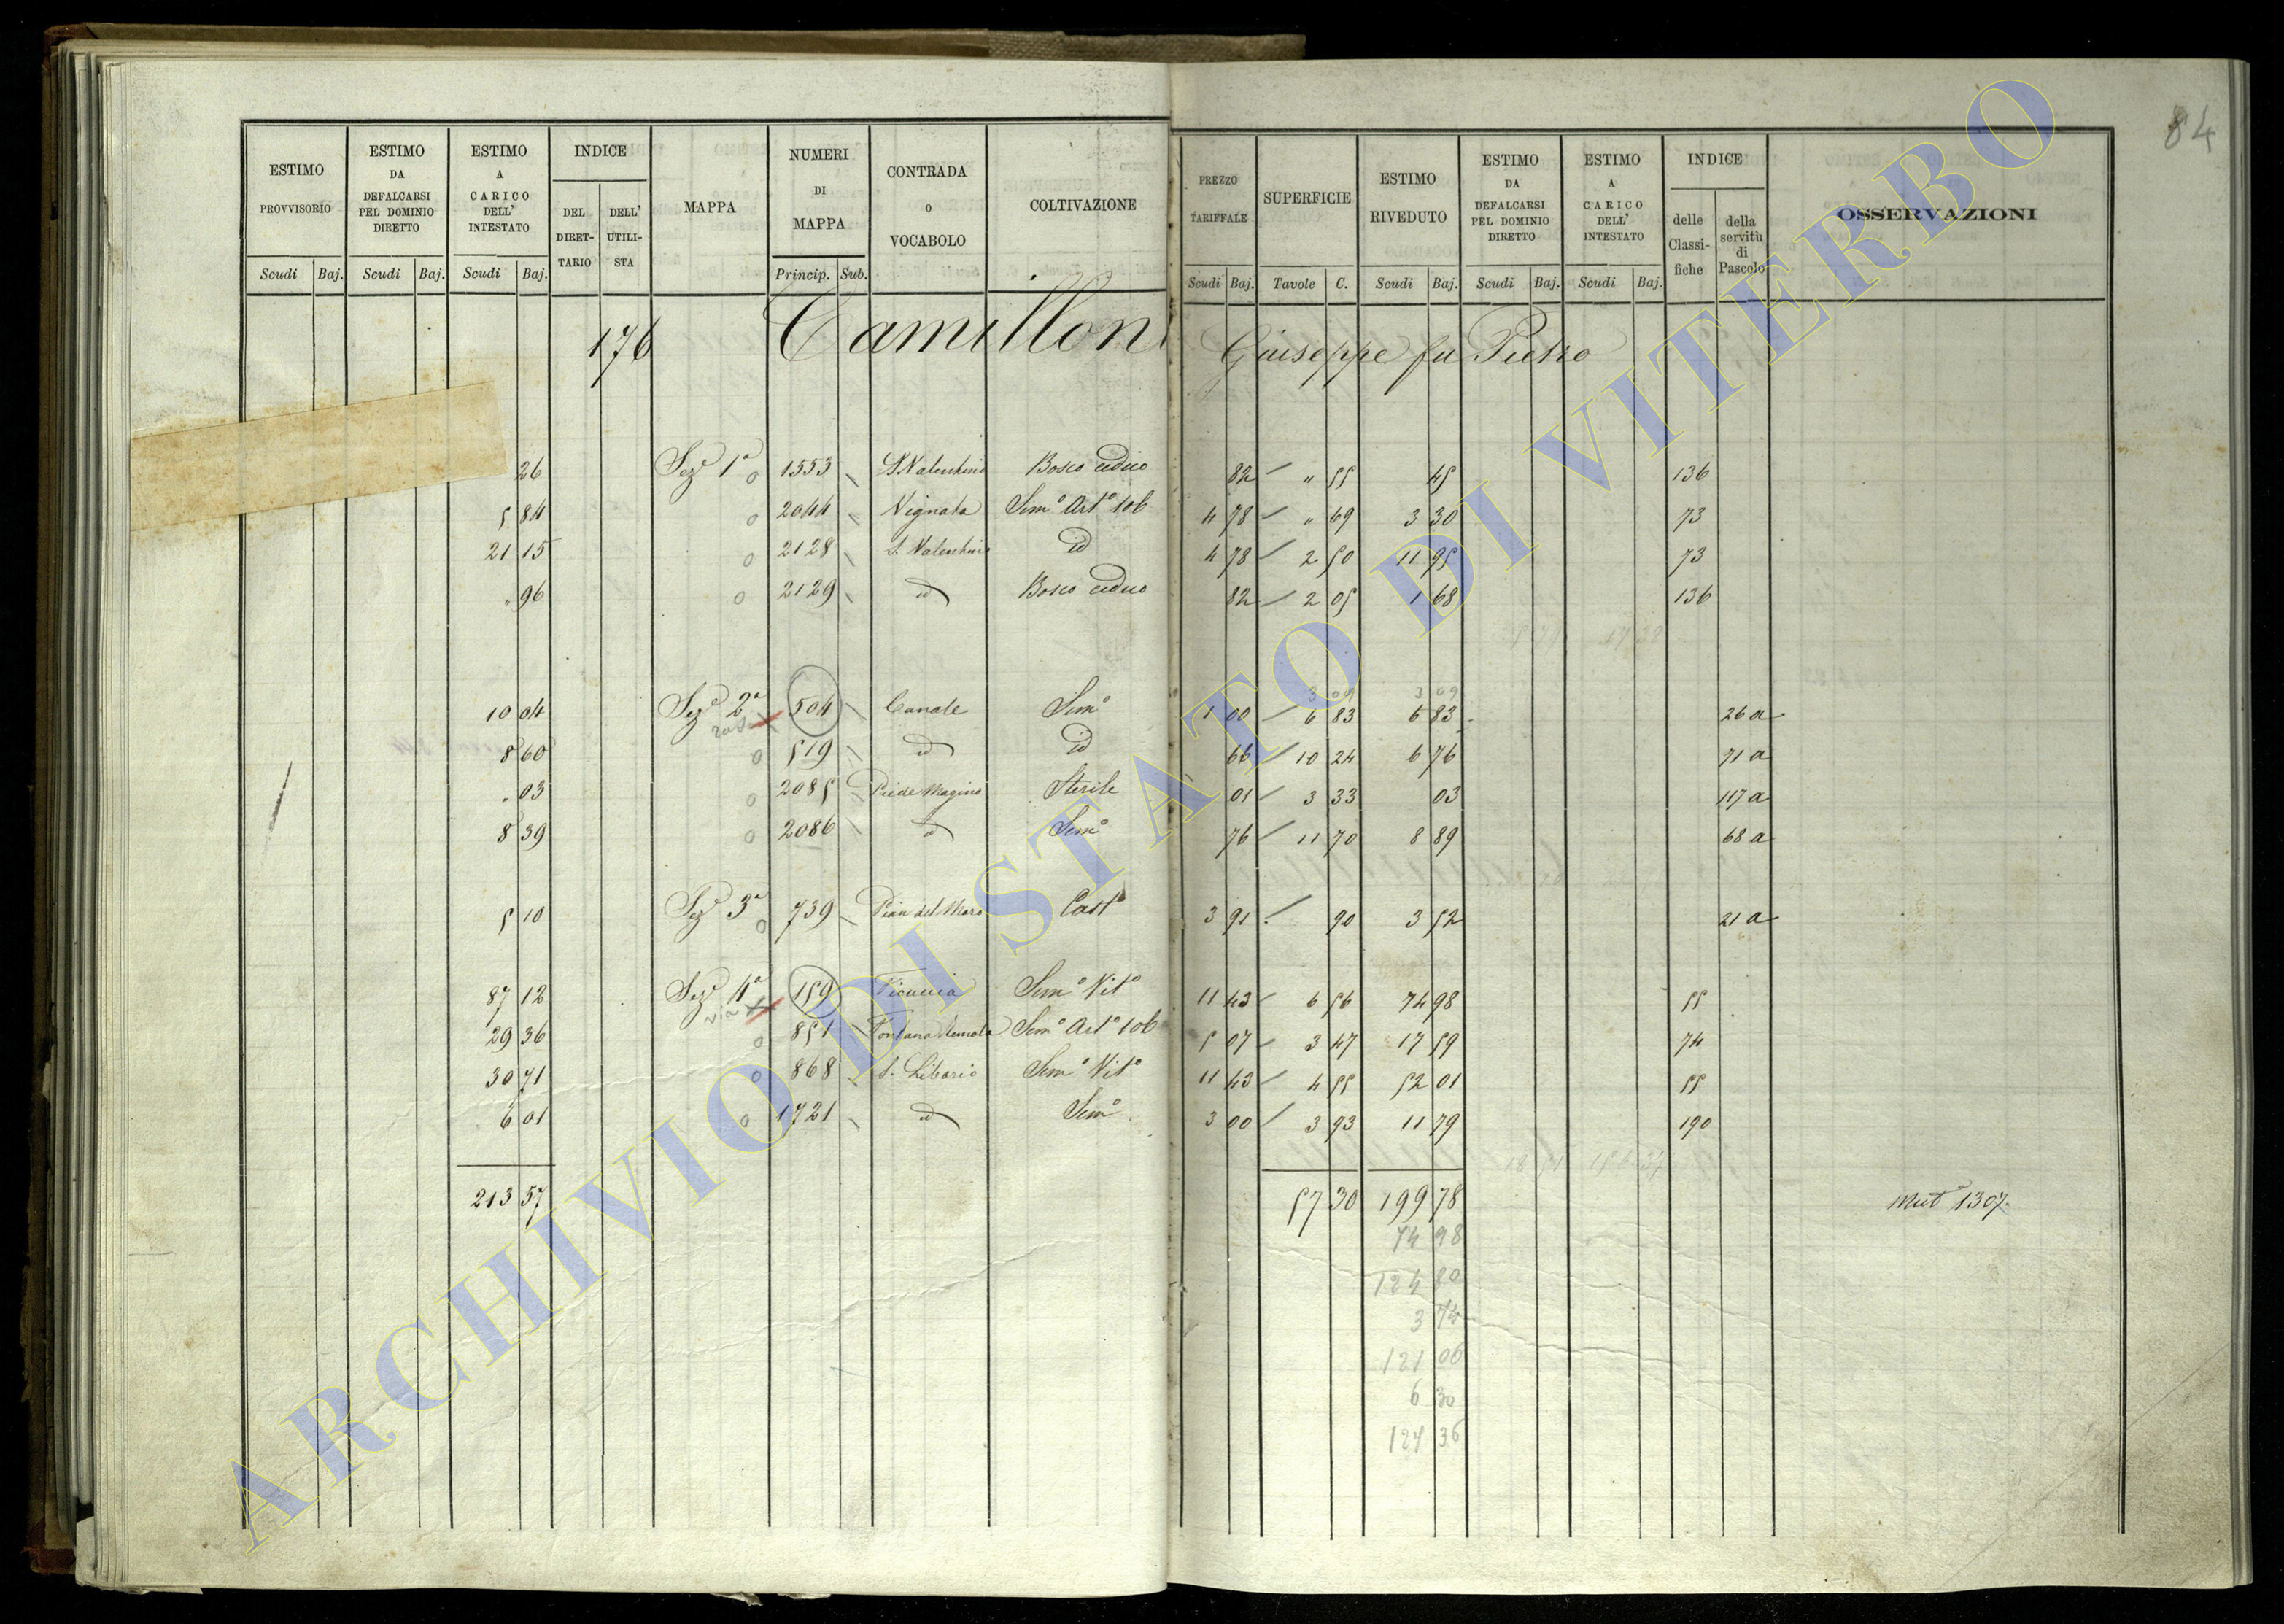 84
ESTIMO PROVVISORIO Scudi Baj. ESTIMO DA DEFALCARSI PEL DOMINIO DIRETTO Scudi Baj. ESTIMO A CARICO DELL' INTESTATO Scudi Baj. INDICE DEL DIRETTARIO DELL' UTILISTA MAPPA NUMERI DI MAPPA Princip. Sub. CONTRADA O VOCABOLO COLTIVAZIONE PREZZO TARIFFALE Scudi Baj. SUPERFICIE Tavole C. ESTIMO RIVEDUTO Scudi Baj. ESTIMO DA DEFALCARSI PEL DOMINIO DIRETTO Scudi Baj. ESTIMO A CARICO DELL' INTESTATO Scudi Baj. INDICE delle Classifiche della servitù di Pascolo OSSERVAZIONI
176 Camilloni Giuseppe fu Pietro
26 Sez.e 1a 0 1553 S. Valentino Bosco ceduo 82 " 55 45 136
5 84 0 2044 Vignata Sem.o Art.o 10b 4 78 " 69 3 30 73
21 15 0 2128 S. Valentino id 4 78 2 50 11 95 73
" 96 0 2129 id Bosco ceduo 82 2 05 1 68 136
3 09 3 09
10 04 Sez.e 2a 504 Canale Sem.o 1 00 6 83 6 83 26 a
8 60 0 519 id id 66 10 24 6 76 71 a
" 03 0 2085 Piede Magino Sterile 01 3 33 03 117 a
8 39 0 2086 id Sem.o 76 11 70 8 89 68 a
5 10 Sez.e 3a 0 739 Pian del Moro Cast.o 3 91 90 3 52 21 a
87 12 Sez.e 4a 159 Sem.o Vit.o 11 43 6 56 74 98 55
via
29 36 0 851 Fontana Sem.o Art.o 10b 5 07 3 47 17 59 74
30 71 0 868 S. Liborio Sem.o Vit.o 11 43 4 55 52 01 55
6 01 0 1721 id Sem.o 3 00 3 93 11 79 190
213 57 57 30 199 78 Mut.o 1307.
74 98
124 80
3 74
121 06
6 30
127 36
ARCHIVIO DI STATO DI VITERBO